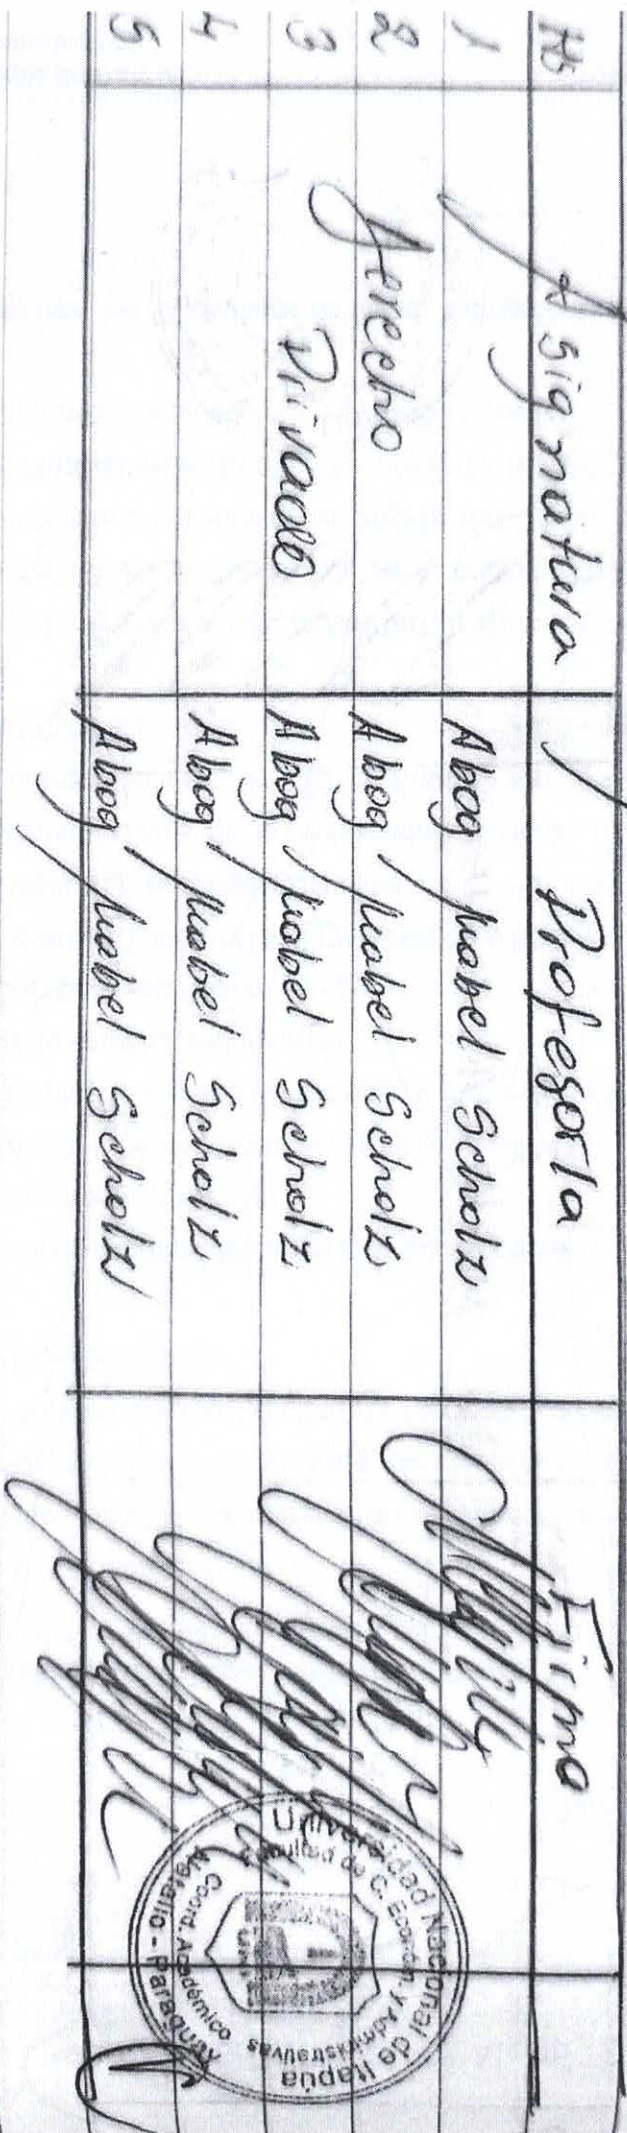 Nº Asignatura Profesor/a Firma
1 Abog. Mabel Scholz
2 Derecho Abog. Mabel Scholz
3 Privado Abog. Mabel Scholz
4 Abog. Mabel Scholz
5 Abog. Mabel Scholz
Universidad Nacional de Itapúa
Facultad de C. Económ. y Administrativas
Coord. Académico
Natalio - Paraguay